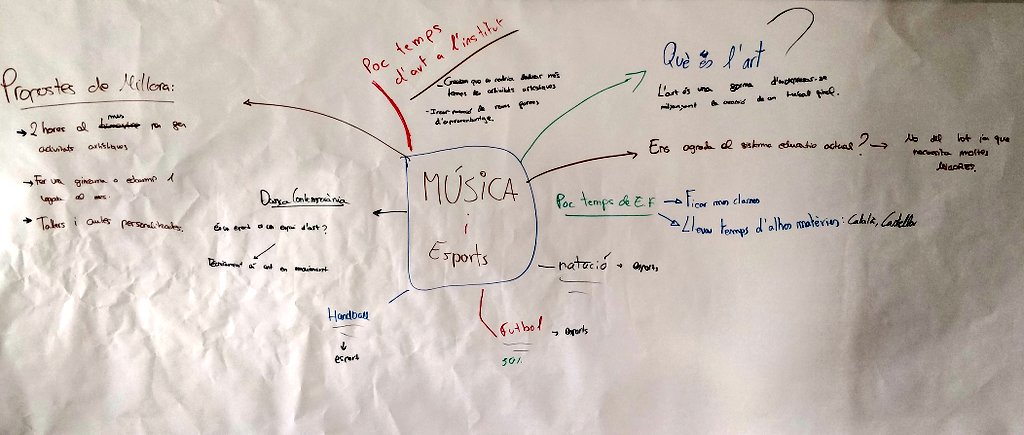 Propostes de Millora:
→ 2 hores al mes per fer
activitats artístiques
→ Fer un gimcama o educamp 1
vegada al mes.
→ Tallers i aules personalitzades.
Poc temps
d'art a l'institut
- Creiem que es podria dedicar més
temps a activitats artístiques
d'aprenentatge.
Què és l'art ?
L'art és una forma d'expressar-se
mitjançant la creació de un treball
Ens agrada el sistema educatiu actual? → No del tot ja que
necessita moltes
MILLORES.
MÚSICA
i
Esports
Dansa Contemporània
És un esport o un espai d'art?
art en moviment
Poc temps de E.F
→ Ficar més classes
→ Llevar temps d'altres matèries: Català, Castellà
natació → esports
Handball
↓
esport
Futbol → esports
50%